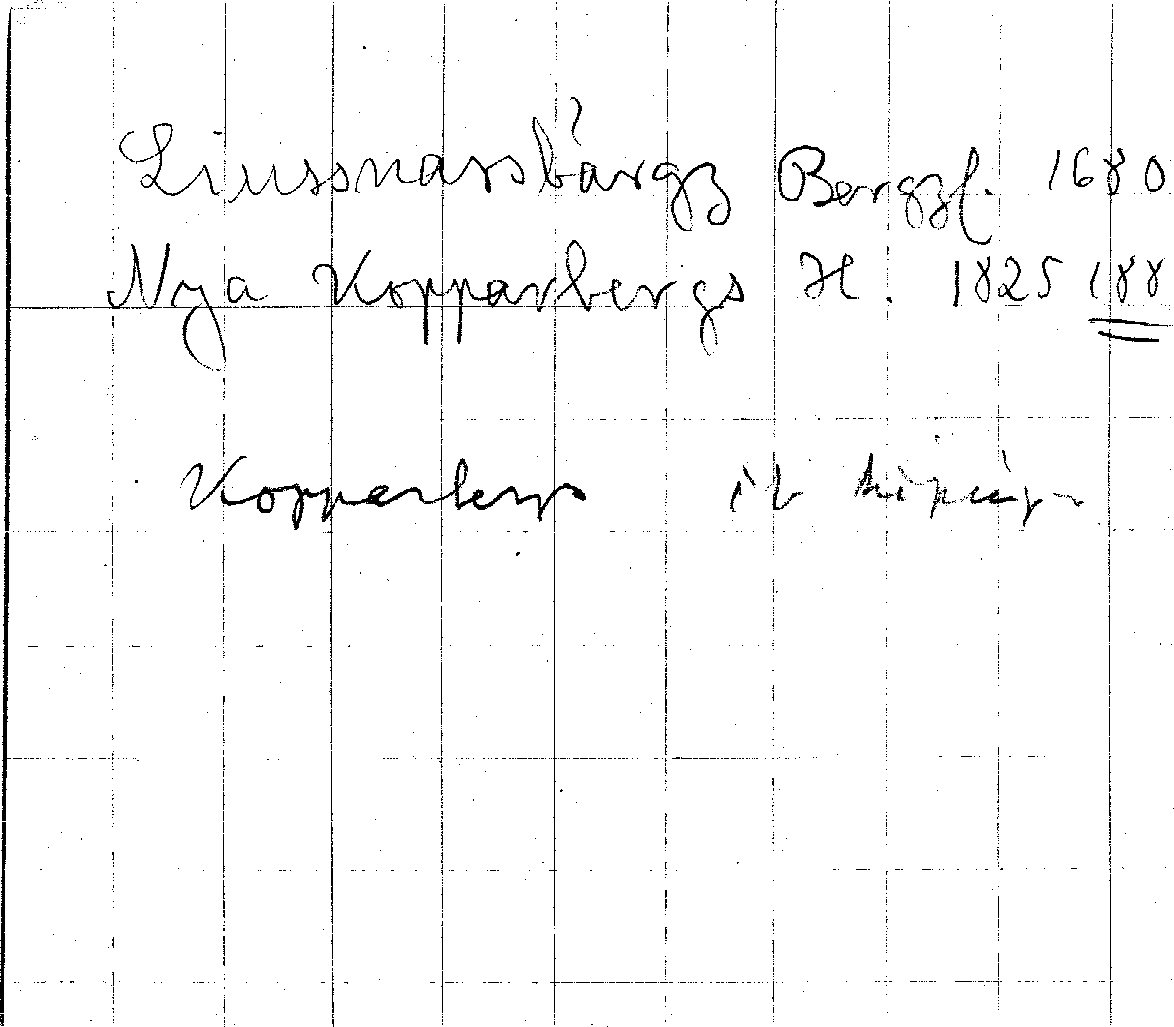 Liussnarsbärgz Bergzl. 1680
Nya Kopparbergs H. 1825 188
Kopparbergs